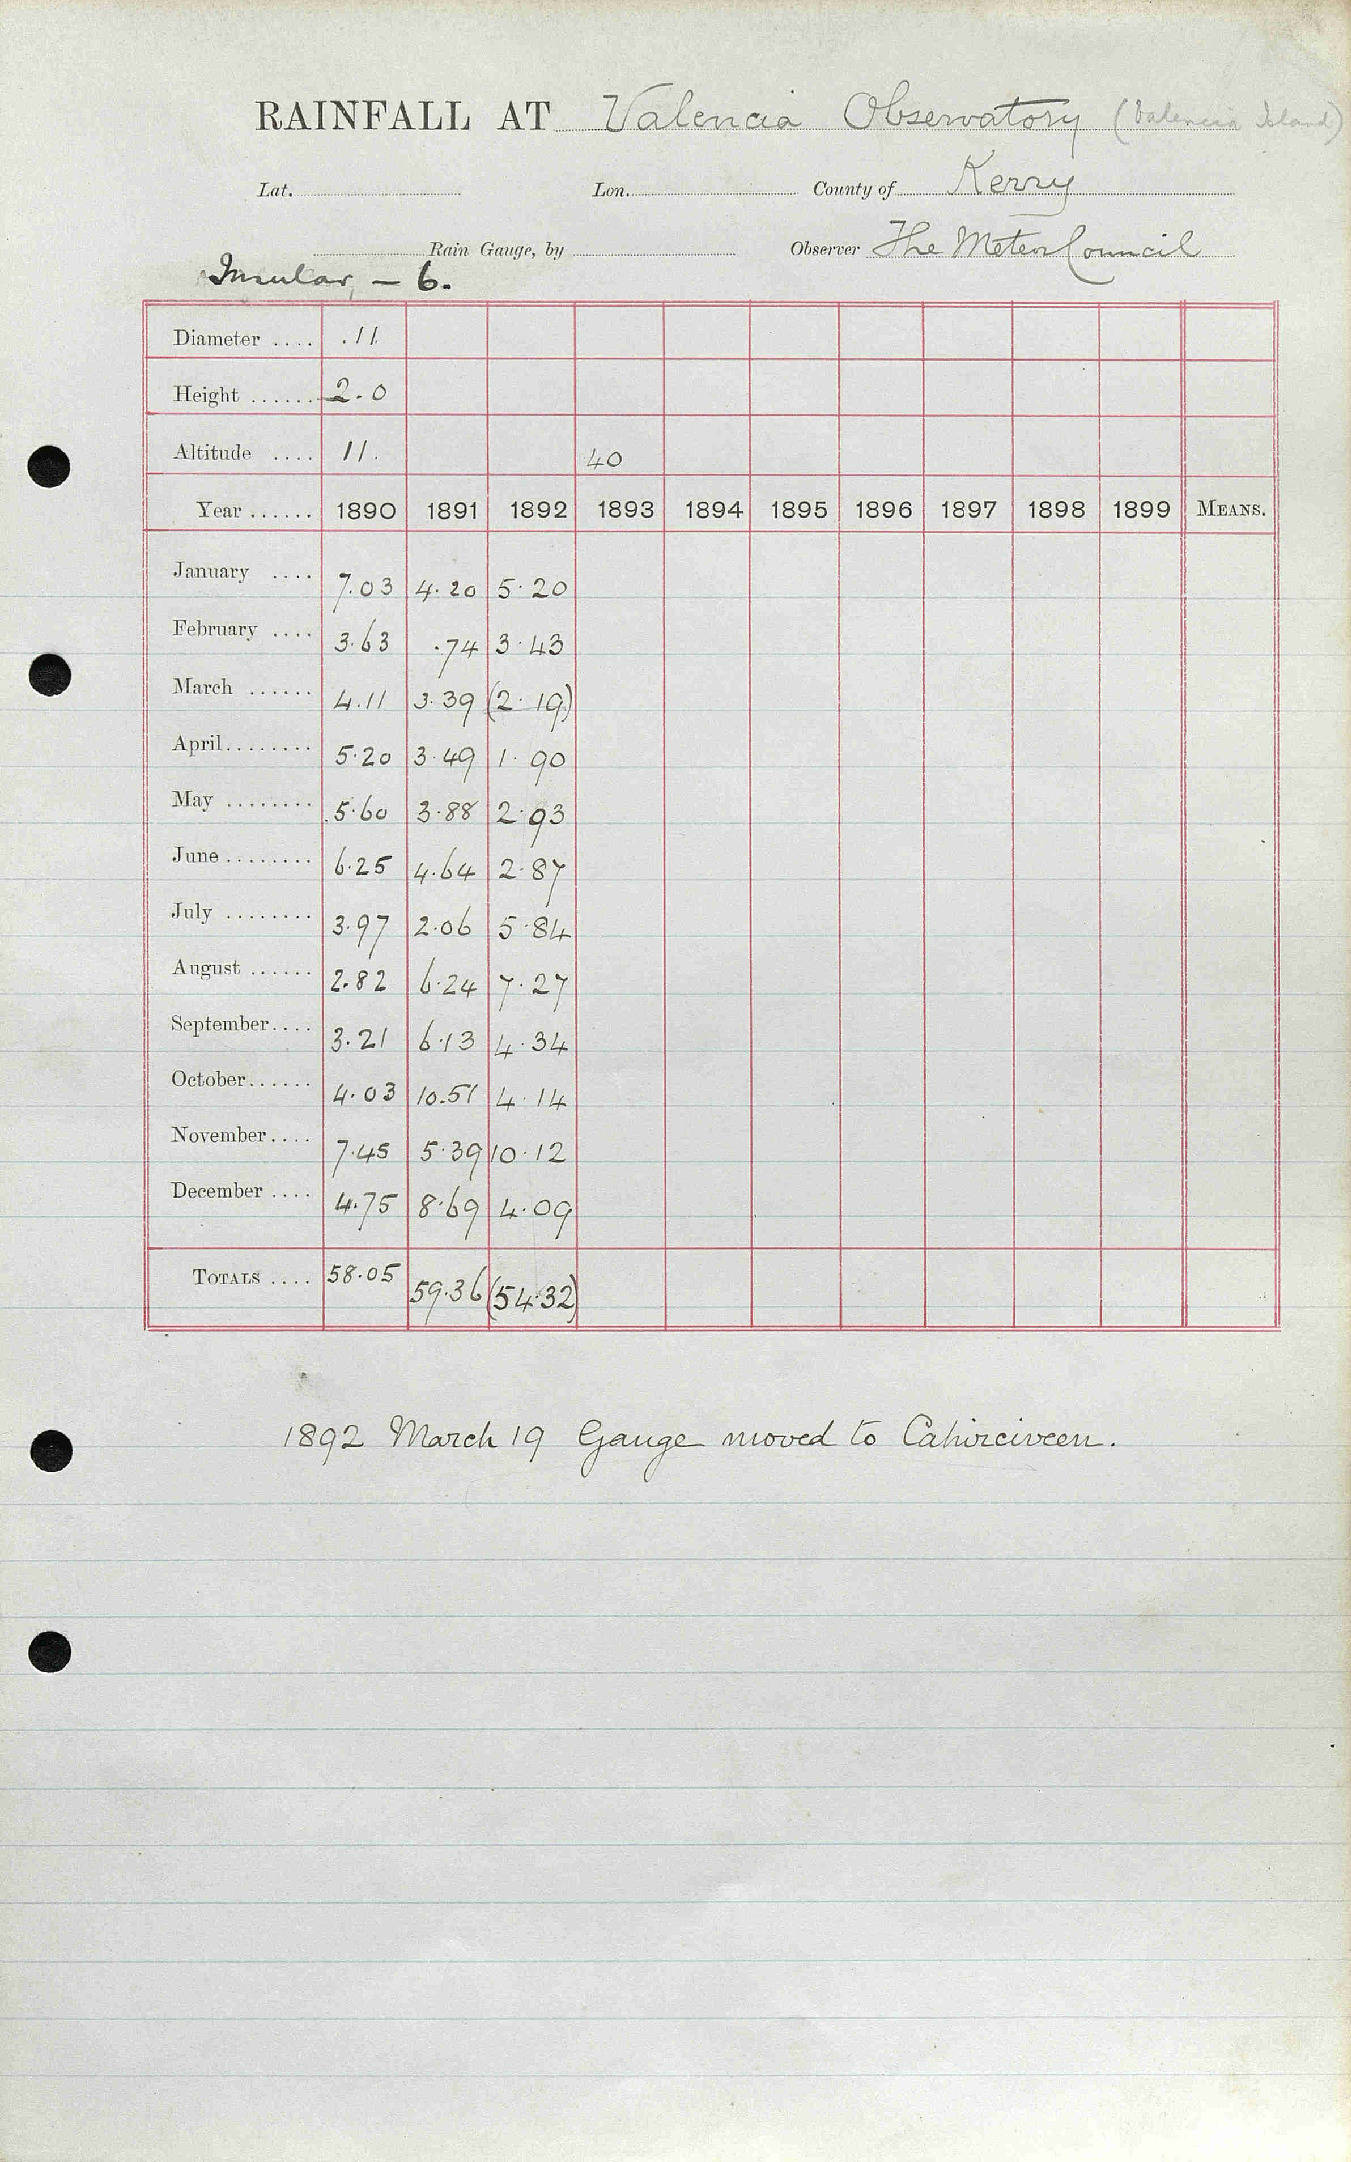 RAINFALL AT Valencia Observatory (Valencia Island)
Lat. Lon. County of Kerry
Rain Gauge, by Observer The Meteor Council
Insular, – 6.
Diameter .... .11
Height ...... 2.0
Altitude .... 11. 40
Year ...... 1890 1891 1892 1893 1894 1895 1896 1897 1898 1899 MEANS.
January .... 7.03 4.20 5.20
February .... 3.63 .74 3.43
March ...... 4.11 3.39 (2.19)
April........ 5.20 3.49 1.90
May ........ 5.60 3.88 2.93
June ........ 6.25 4.64 2.87
July ........ 3.97 2.06 5.84
August ...... 2.82 6.24 7.27
September.... 3.21 6.13 4.34
October...... 4.03 10.51 4.14
November.... 7.45 5.39 10.12
December .... 4.75 8.69 4.09
TOTALS .... 58.05 59.36 (54.32)
1892 March 19 Gauge moved to Cahirciveen.